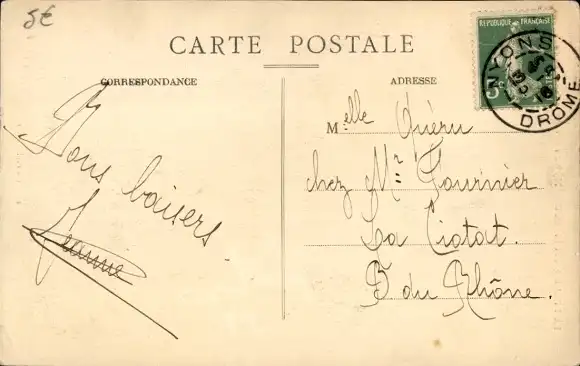 5€
CARTE POSTALE
CORRESPONDANCE
ADRESSE
REPUBLIQUE FRANÇAISE
5c
NYONS
DROME
Bons baisers
Jeanne
Melle Quéru
chez Mr Fournier
La Ciotat.
B du Rhône.